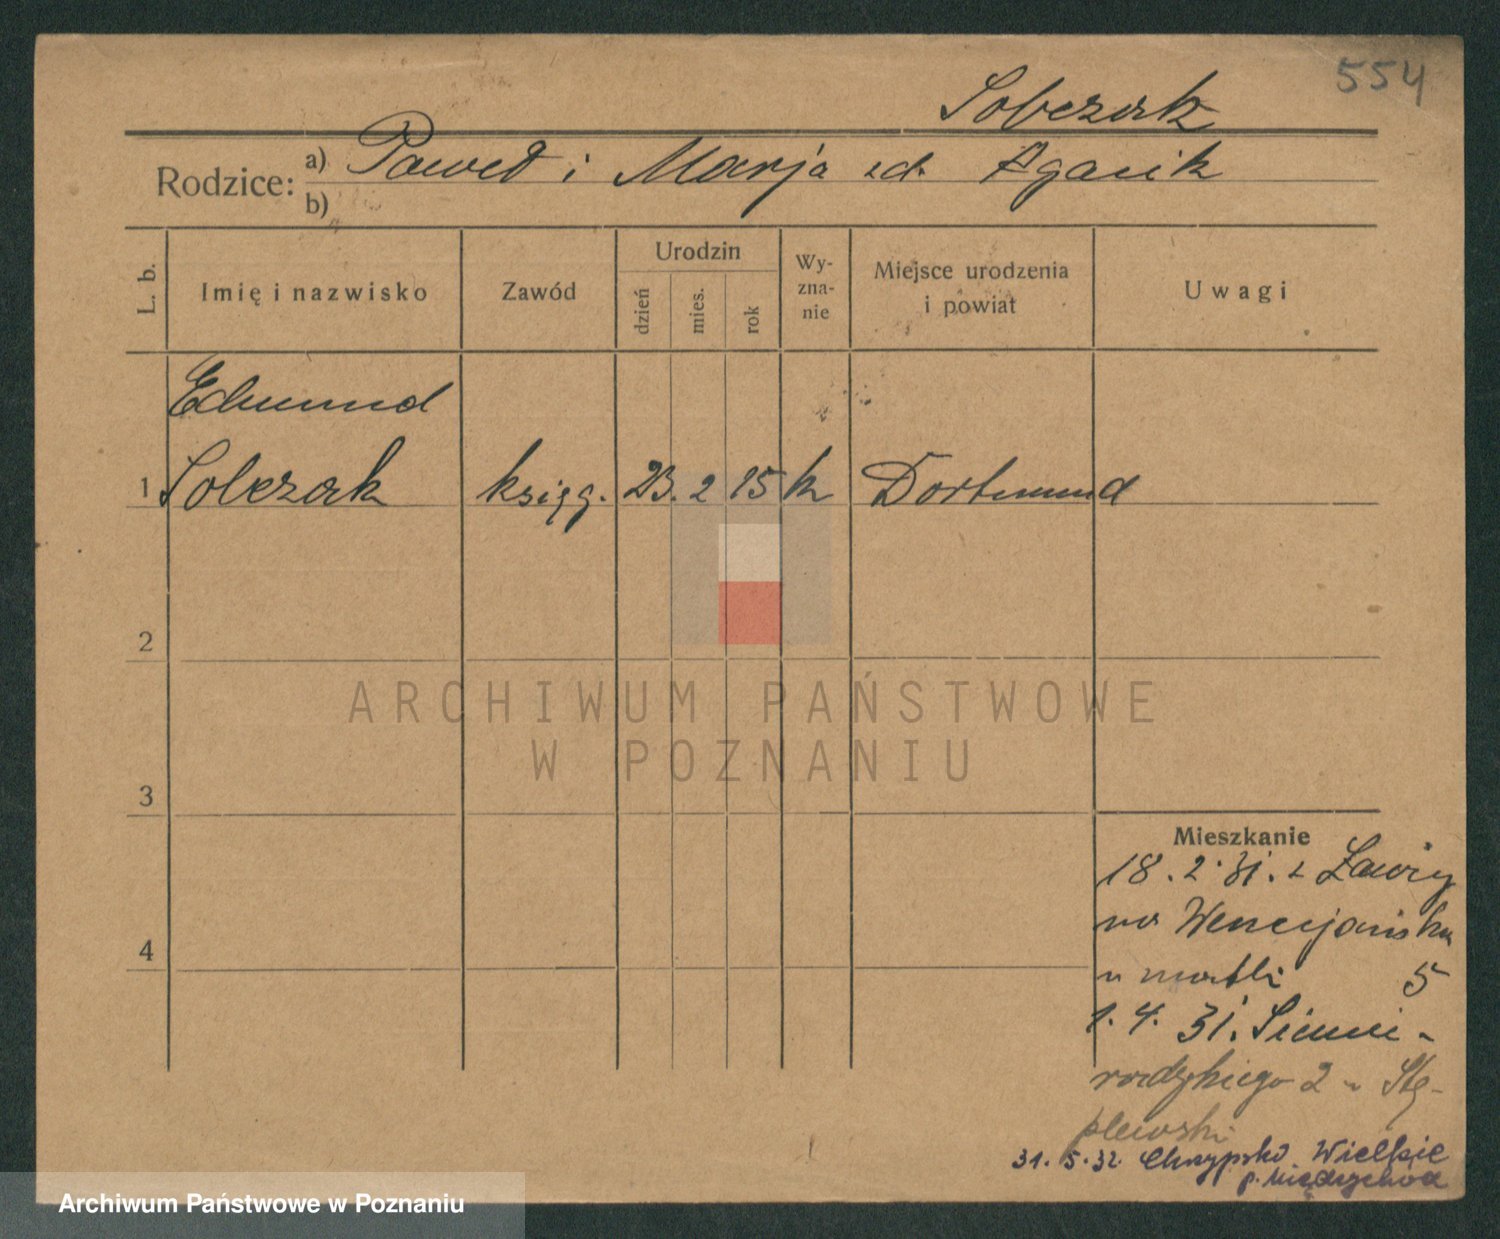 554
Sobczak
Rodzice: a) Paweł i Marja zd. Aganik
b)
L. b.
Imię i nazwisko
Zawód
Urodzin
dzień
mies.
rok
Wy-
zna-
nie
Miejsce urodzenia
i powiat
Uwagi
Edmund
1 Sobczak księg. 23. 2 15 k Dortmund
2
3
4
ARCHIWUM PAŃSTWOWE
W POZNANIU
Mieszkanie
18. 2. 31. z Ławicy
na Wenecjańska
u matki 5
1. 4. 31. Siemi-
radzkiego 2 u Stę-
plewski
31. 5. 32. Chrzypsko Wielkie
p. Międzychód
Archiwum Państwowe w Poznaniu